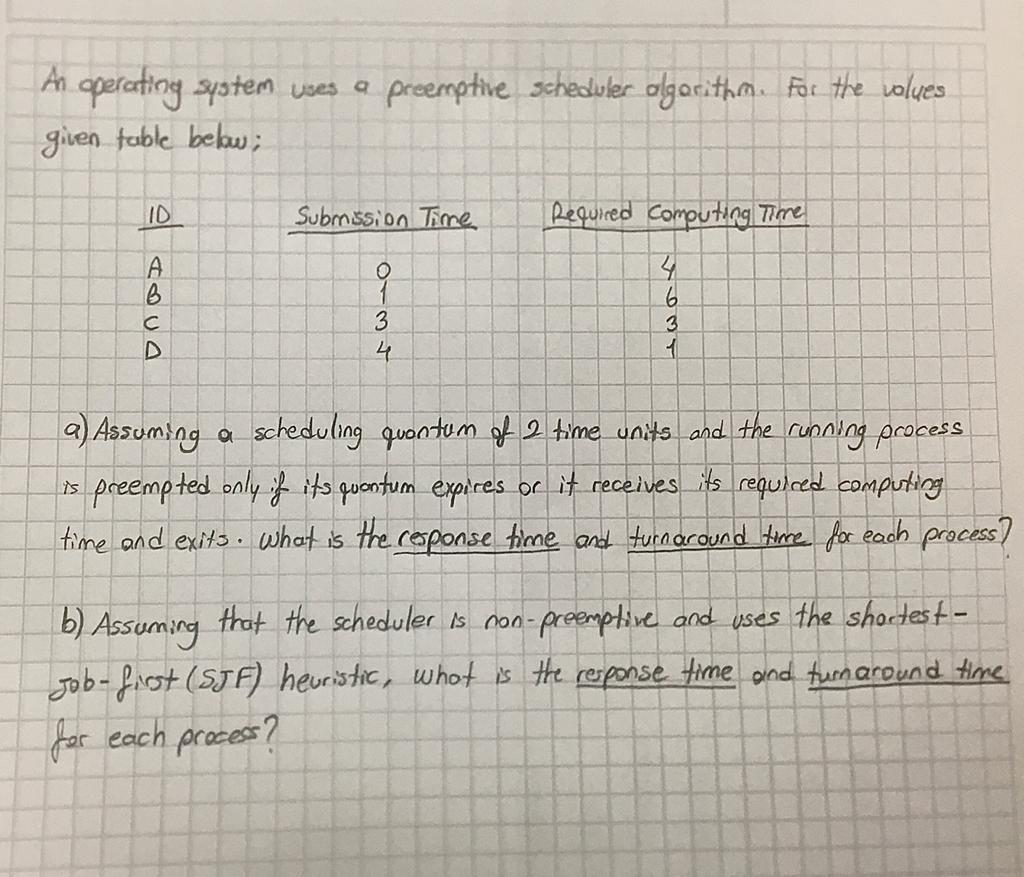 An operating system uses a preemptive scheduler algorithm. For the values
given table below;
ID Submission Time Required Computing Time
A 0 4
B 1 6
C 3 3
D 4 1
a) Assuming a scheduling quantum of 2 time units and the running process
is preempted only if its quantum expires or it receives its required computing
time and exits. What is the response time and turnaround time for each process?
b) Assuming that the scheduler is non-preemptive and uses the shortest-
Job-first (SJF) heuristic, what is the response time and turnaround time
for each process?